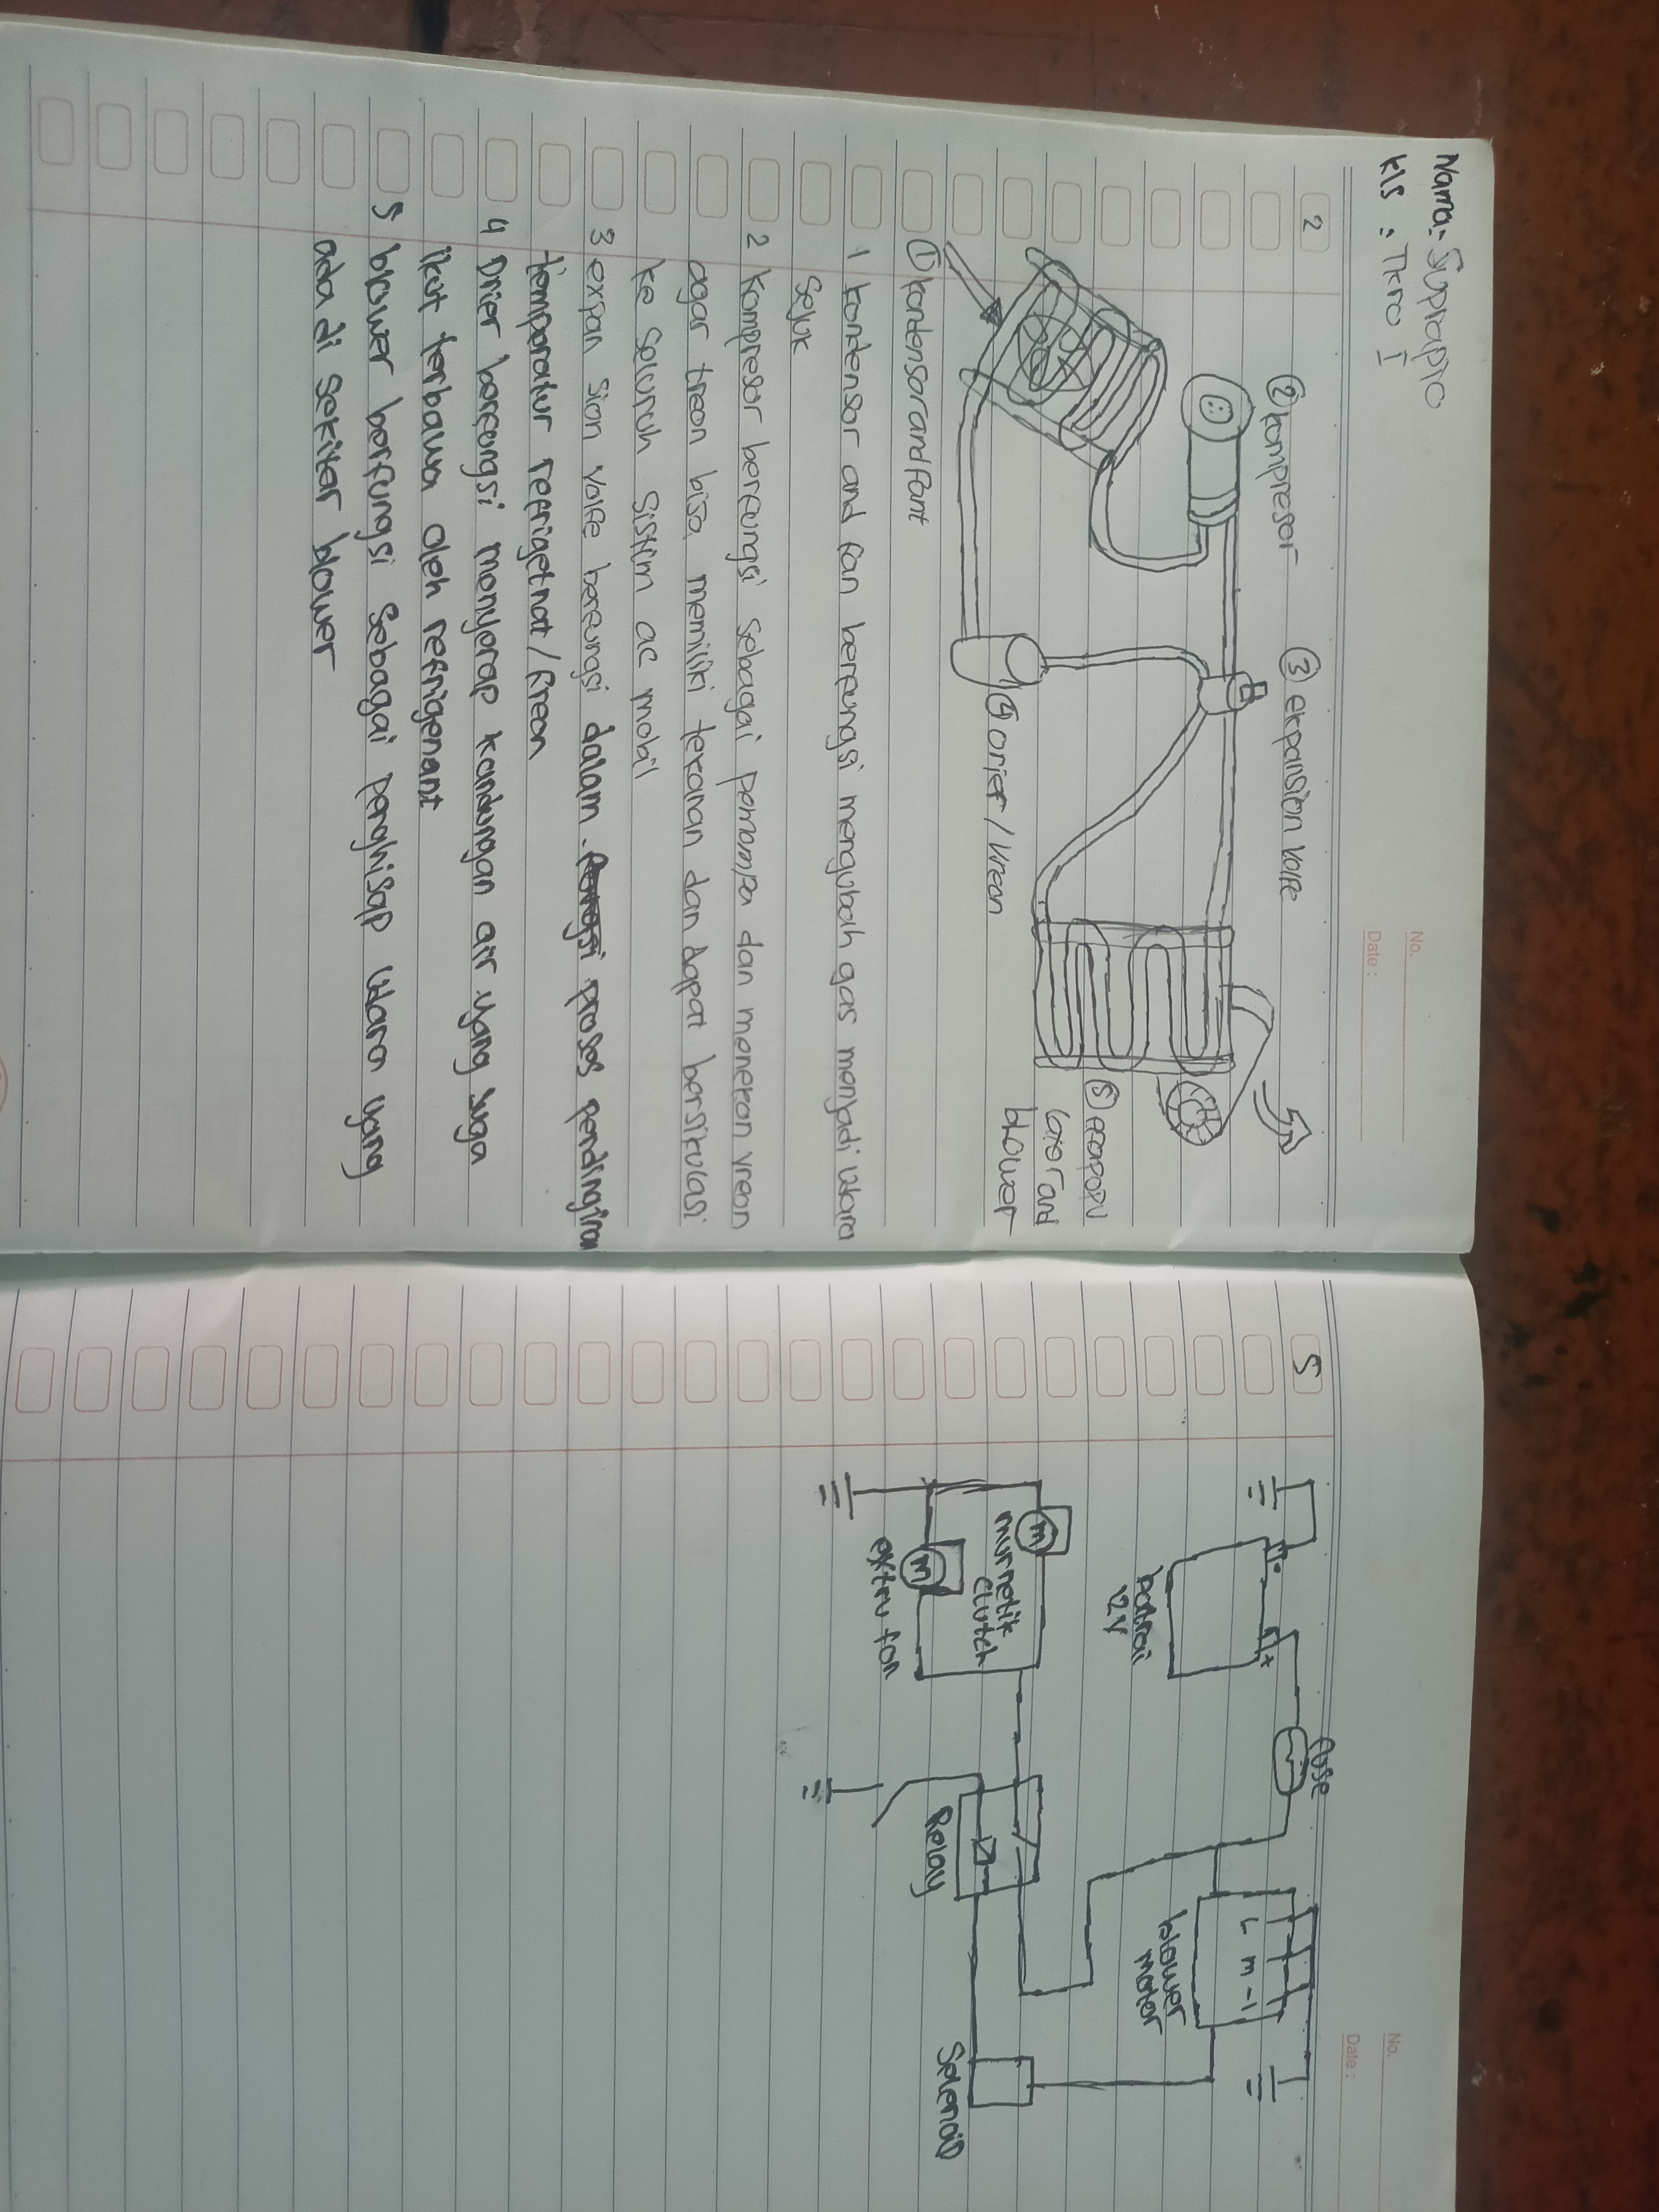 Nama: Suprapto
Kls : Tkro I
No.
Date :
2
② Kompresor
③ expansion valfe
① kondensor and fant
④ Drier / Vreon
⑤ evapopu
lator and
blower
1 kondensor and fan berfungsi mengubah gas menjadi Udara
Sejuk
2 Kompresor berfungsi sebagai pemompa dan menekan vreon
agar freon bisa memiliki tekanan dan dapat bersikulasi
ke seluruh sistim ac mobil
3 expan sion valfe berfungsi dalam proses pendinginan
temperatur refrigetnat / freon
4 Drier berfungsi menyerap kandungan air yang Juga
ikut terbawa oleh refrigenant
5 blower berfungsi sebagai penghisap Udara yang
ada di sekitar blower
No.
Date :
5
fuse
- +
batrai
12 V
L m -1
blower
motor
m
murnetik
clutch
m
extru fan
Relay
Selenoid